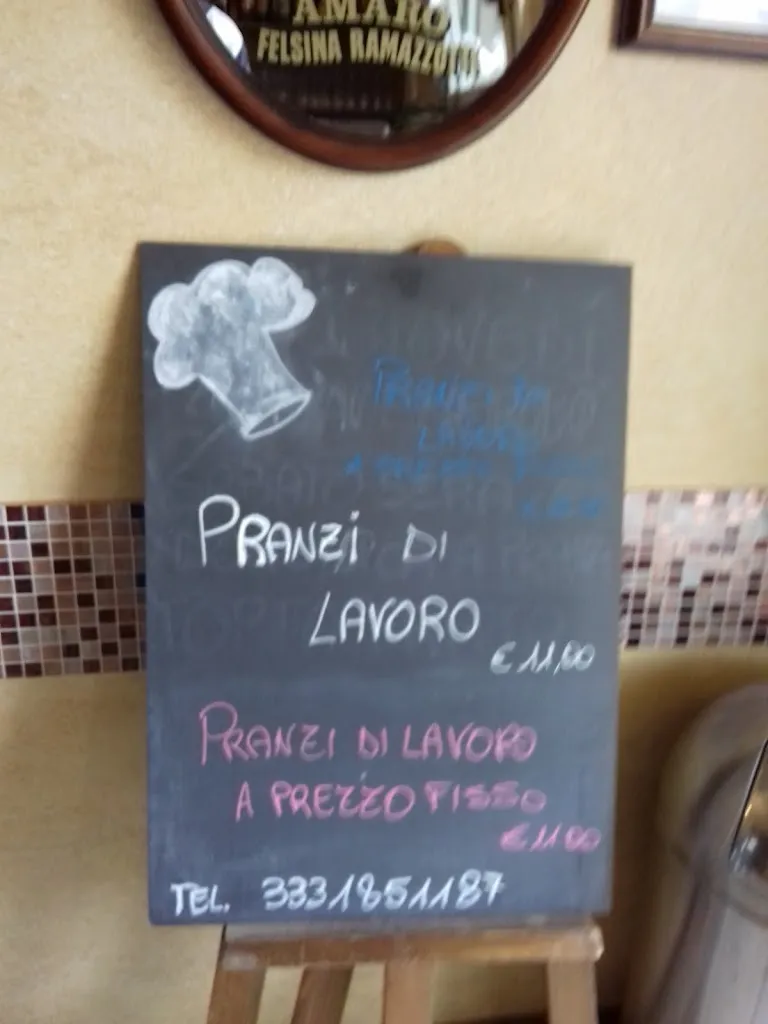 AMARO
FELSINA RAMAZZOTTI
PRANZI DI
LAVORO
A PREZZO FISSO
PRANZI DI
LAVORO
€ 11,00
PRANZI DI LAVORO
A PREZZO FISSO
€ 11,00
TEL. 3331851187